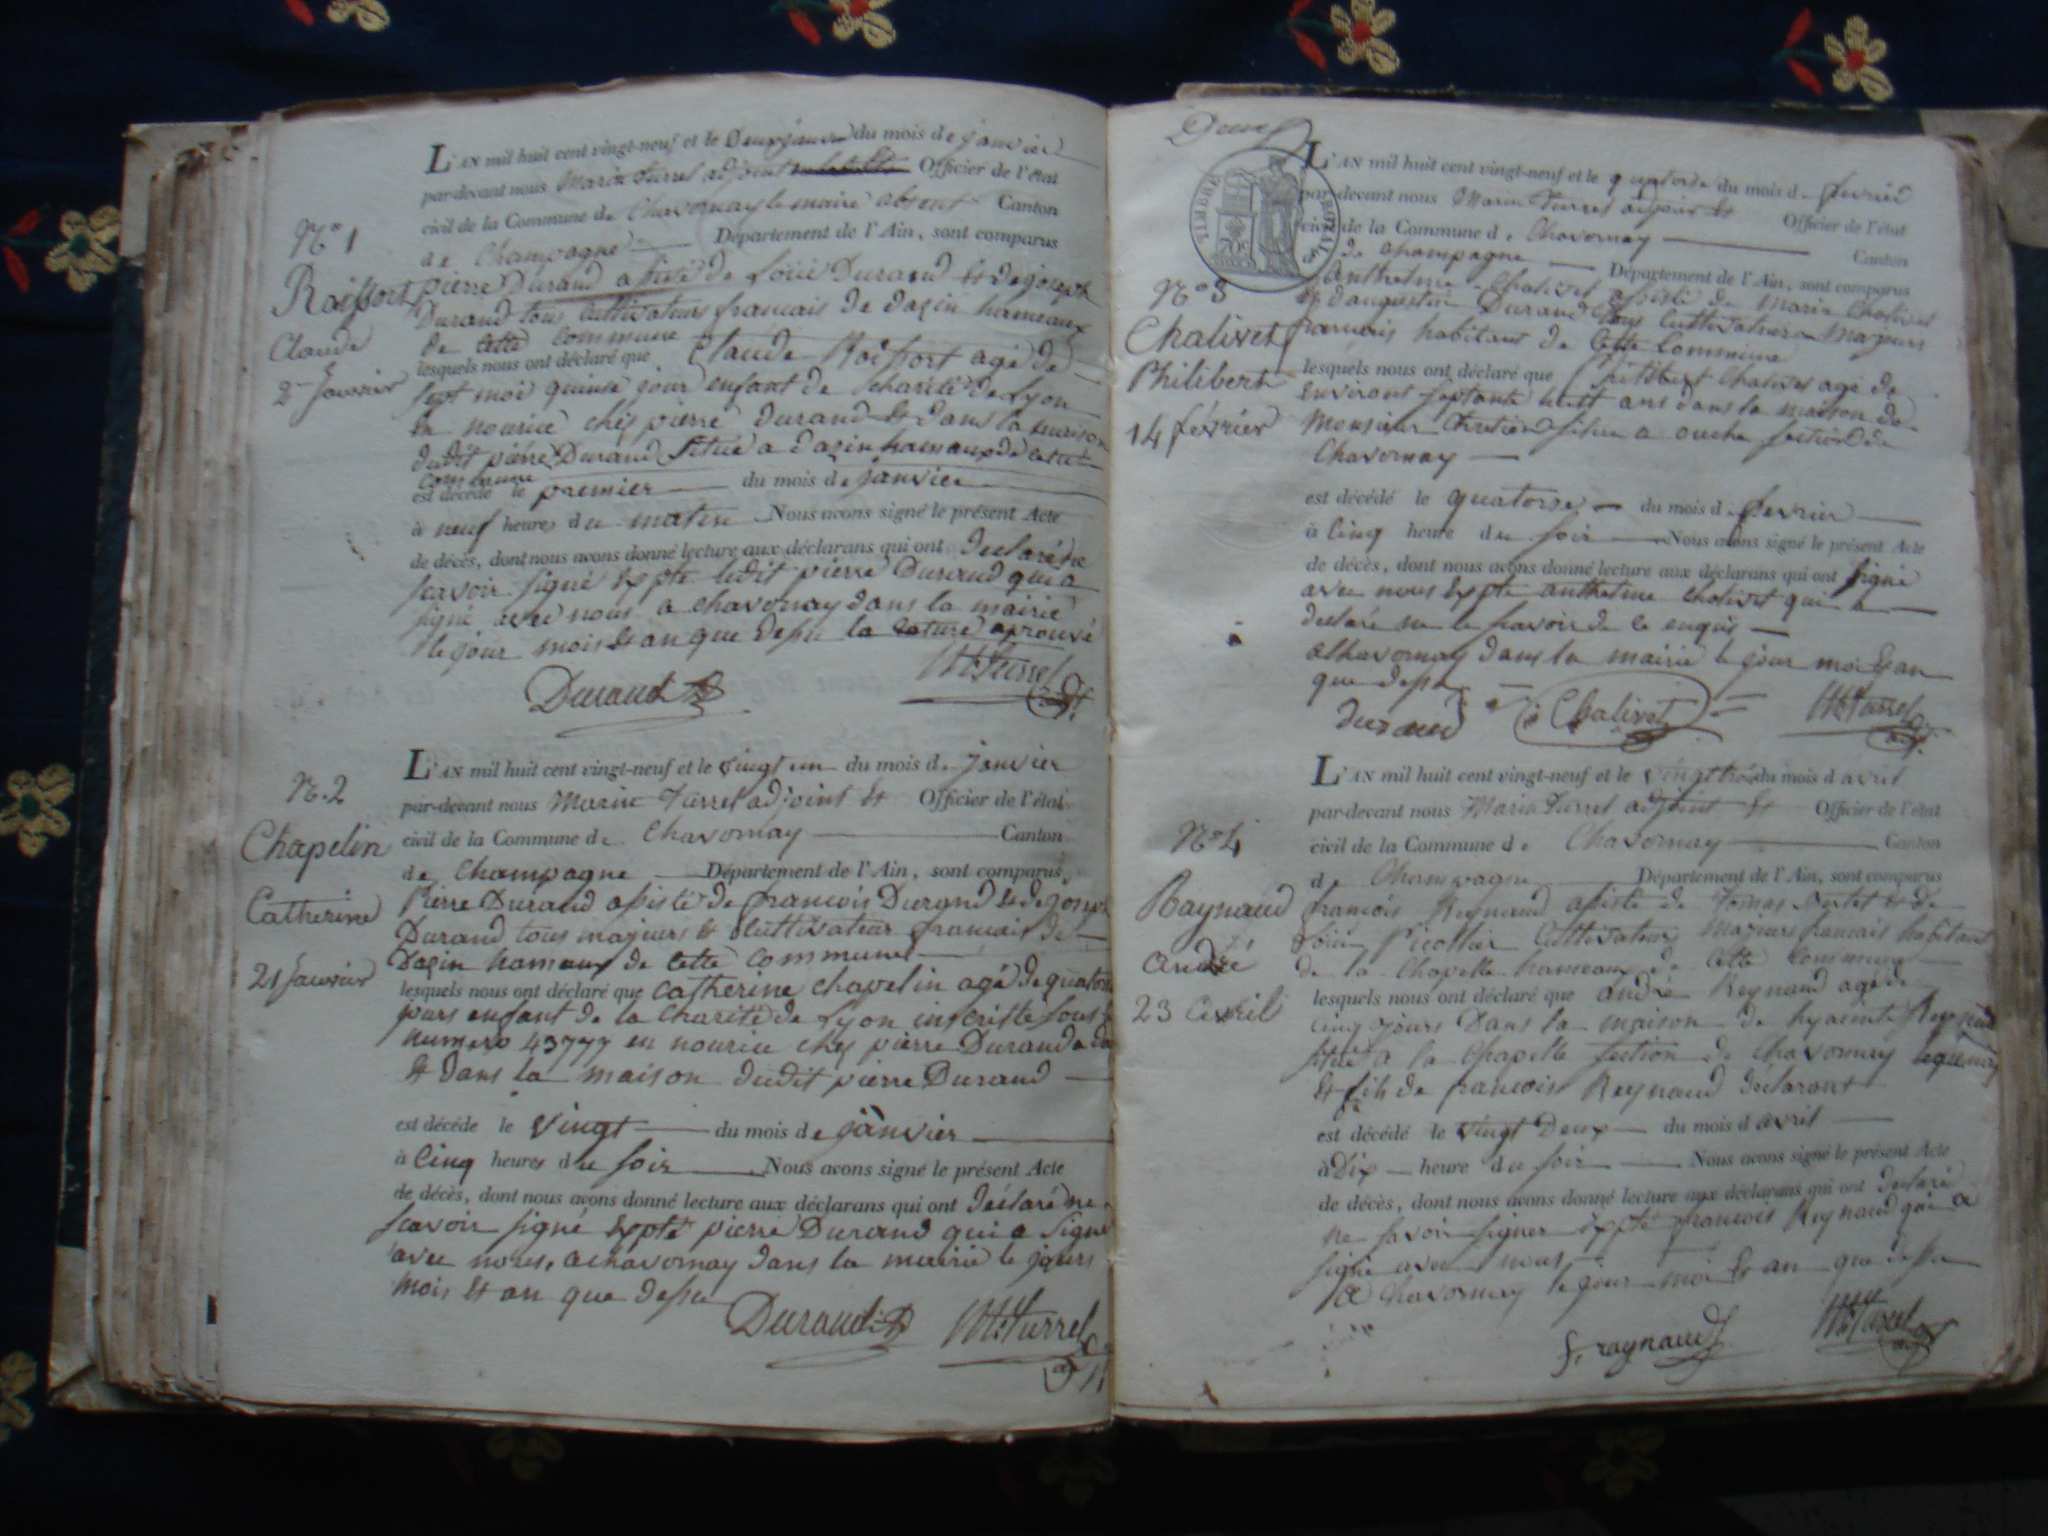 N.º 1
Roissort
Claude
2 janvier
L'AN mil huit cent vingt-neuf et le Deux janvier du mois de janvier
par-devant nous Marin Turrel adjoint Officier de l'état
civil de la Commune de Chavornay le maire absent Canton
de Champagne Département de l'Ain, sont comparus
pierre Durand assisté de Loüis Durand et de joseph
Durand tous cultivateurs francais de dazin hameaux
de cette commune
lesquels nous ont déclaré que Claude Roissort agé de
sept moi quinse jour enfant de charité de Lyon
en nourice chez pierre Durand et dans la maison
dudit pierre Durand situé a dazin hameaux de cette
commune
est décédé le premier du mois de janvier
à neuf heures du matin Nous avons signé le présent Acte
de décès, dont nous avons donné lecture aux déclarans qui ont declaré ne
scavoir signé expte ledit pierre Durand qui a
signé avec nous a chavornay dans la mairie
le jour mois et an que dessu la rature aprouvé
Durand
M. Turrel adj.
N. 2
Chapelin
Catherine
21 janvier
L'AN mil huit cent vingt-neuf et le vingt un du mois de janvier
par-devant nous Marin Turrel adjoint et Officier de l'état
civil de la Commune de Chavornay Canton
de Champagne Département de l'Ain, sont comparus
Pierre Durand assisté de francois Durand et de joseph
Durand tous majeurs et cultivateur francais de
Dazin hameaux de cette commune
lesquels nous ont déclaré que catherine chapelin agé de quatorse
jours enfant de la charité de Lyon inscritte sous le
numero 43777 en nourice chez pierre Durand
et dans la maison dudit pierre Durand
est décédé le vingt du mois de janvier
à cinq heures du soir Nous avons signé le présent Acte
de décès, dont nous avons donné lecture aux déclarans qui ont déclaré ne
scavoir signé expté pierre Durand qui a signé
avec nous, a chavornay dans la mairie le jours
mois et an que dessu
Durand
M. Turrel adj.
Deux
TIMBRE ROYAL
N.º 3
Chalivet
Philibert
14 février
L'AN mil huit cent vingt-neuf et le quatorse du mois de fevrier
par-devant nous Marin Turrel adjoint et Officier de l'état
civil de la Commune de Chavornay Canton
de champagne Département de l'Ain, sont comparus
anthelme Chalivet assisté de Marin Chalivet
et d'augustin Durand tous cultivateurs majeurs
francais habitant de cette commune
lesquels nous ont déclaré que Philibert Chalivet agé de
environt septante huit ans dans la maison de
Monsieur Chretien situe a ouche section de
Chavornay
est décédé le quatorse du mois de fevrier
à cinq heure du soir Nous avons signé le présent Acte
de décès, dont nous avons donné lecture aux déclarans qui ont signé
avec nous expte anthelme chalivet qui a
declaré ne le scavoir de ce enquis
a Chavornay dans la mairie le jour moi et an
que dessu
durand
Chalivet
M. Turrel adj.
N.º 4
Raynaud
andré
23 avril
L'AN mil huit cent vingt-neuf et le vingt trois du mois d avril
par-devant nous Marin Turrel adjoint et Officier de l'état
civil de la Commune de Chavornay Canton
de Champagne Département de l'Ain, sont comparus
francois Reynaud assisté de et de
Loüis cultivateurs majeurs francais habitant
de la Chapelle hameaux de cette commune
lesquels nous ont déclaré que andré Reynaud agé de
cinq jours Dans la maison de hyacinte Reynaud
situé a la Chapelle section de Chavornay lequel
et fils de francois Reynaud déclarant
est décédé le vingt Deux du mois d avril
à Dix heure du soir Nous avons signé le présent Acte
de décès, dont nous avons donné lecture aux déclarans qui ont declaré
ne savoir signer expté francois Reynaud qui a
signé avec nous
a Chavornay le jour moi et an que dessu
f. raynaud
M. Turrel adj.